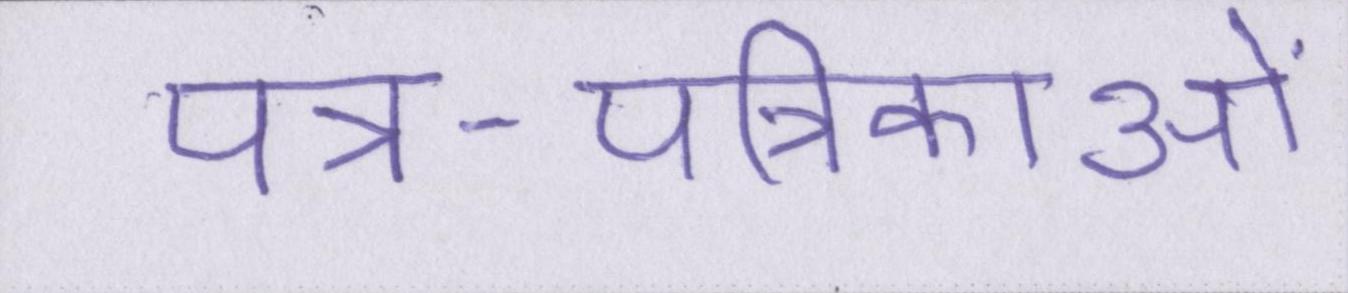 पत्र-पत्रिकाओं